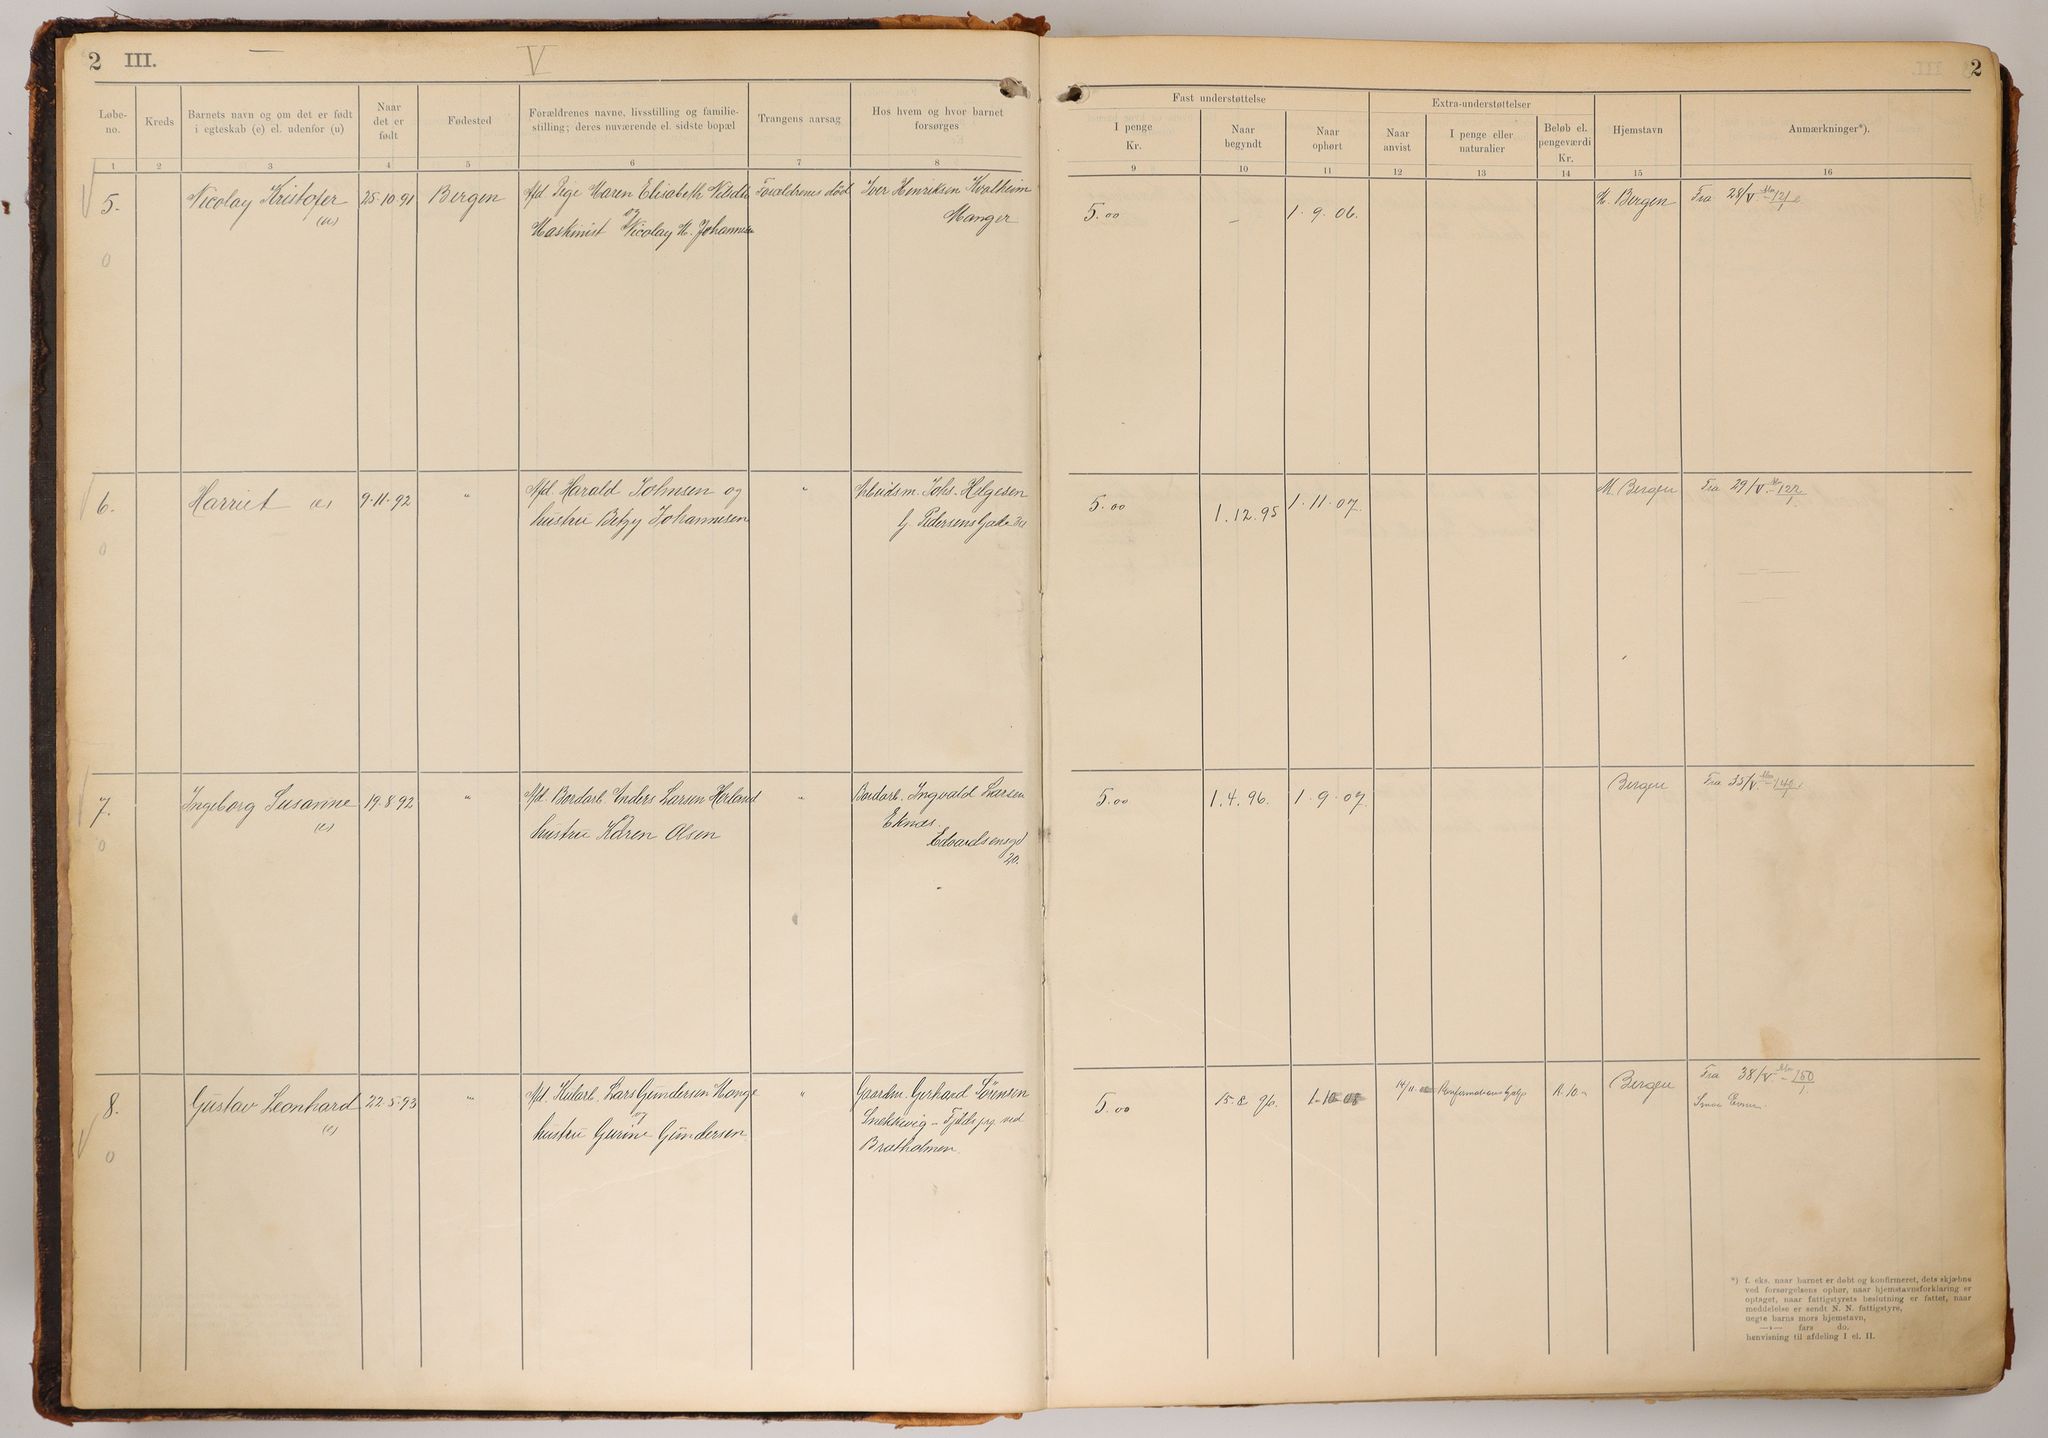 2 III. V
Løbe-no. | Kreds | Barnets navn og om det er født i egteskab (e) el. udenfor (u) | Naar det er født | Fødested | Forældrenes navne, livsstilling og familie-stilling; deres nuværende el. sidste bopæl | Trangens aarsag | Hos hvem og hvor barnet forsørges
1 2 3 4 5 6 7 8
5. Nicolay Kristofer 25.10.91 Bergen Afd. Pige Maren Elisabeth Forældrenes død Iver Henriksen Kvalheim
(u) og Manger
Maskinist Nicolay M. Johannesen
0
6. Harriet (e) 9.11.92 " Afd. Harald Johnsen og " Arbeidsm. Johs. Helgesen
hustru Betzy Johannesen G. Pedersens Gade
0
7. Ingeborg Susanne 19.8.92 " Afd. Bordarb. Anders Larsen Herland " Bordarb. Ingvald Larsen
(e) hustru Karen Olsen Eknæs.
Edvardsensgd
20.
0
8. Gustav Leonhard 22.5.93 " Afd. Lars Gundersen Mange " Gaardm. Gerhard Sörensen
(e) og Snekkevig – ved
hustru Gurine Gundersen Bratholmen.
0
2
Fast understøttelse | Extra-understøttelser | Hjemstavn | Anmærkninger*).
I penge Kr. | Naar begyndt | Naar ophørt | Naar anvist | I penge eller naturalier | Beløb el. pengeværdi Kr.
9 10 11 12 13 14 15 16
5.00 – 1.9.06. M. Bergen Fra 28/V. – 121
5.00 1.12.95 1.11.07. M. Bergen Fra 29/V. – 122/1
5.00 1.4.96. 1.9.07 Bergen Fra 35/V. – 149/1
5.00 15.8.96. 1.10.08 14/11 Konfirmationshjelp K. 10.- Bergen Fra 38/V. – 160/1
*) f. eks. naar barnet er døbt og konfirmeret, dets skjæbne
ved forsørgelsens ophør, naar hjemstavnsforklaring er
optaget, naar fattigstyrets beslutning er fattet, naar
meddelelse er sendt N. N. fattigstyre,
uegte barns mors hjemstavn,
—»— fars do.
henvisning til afdeling I el. II.